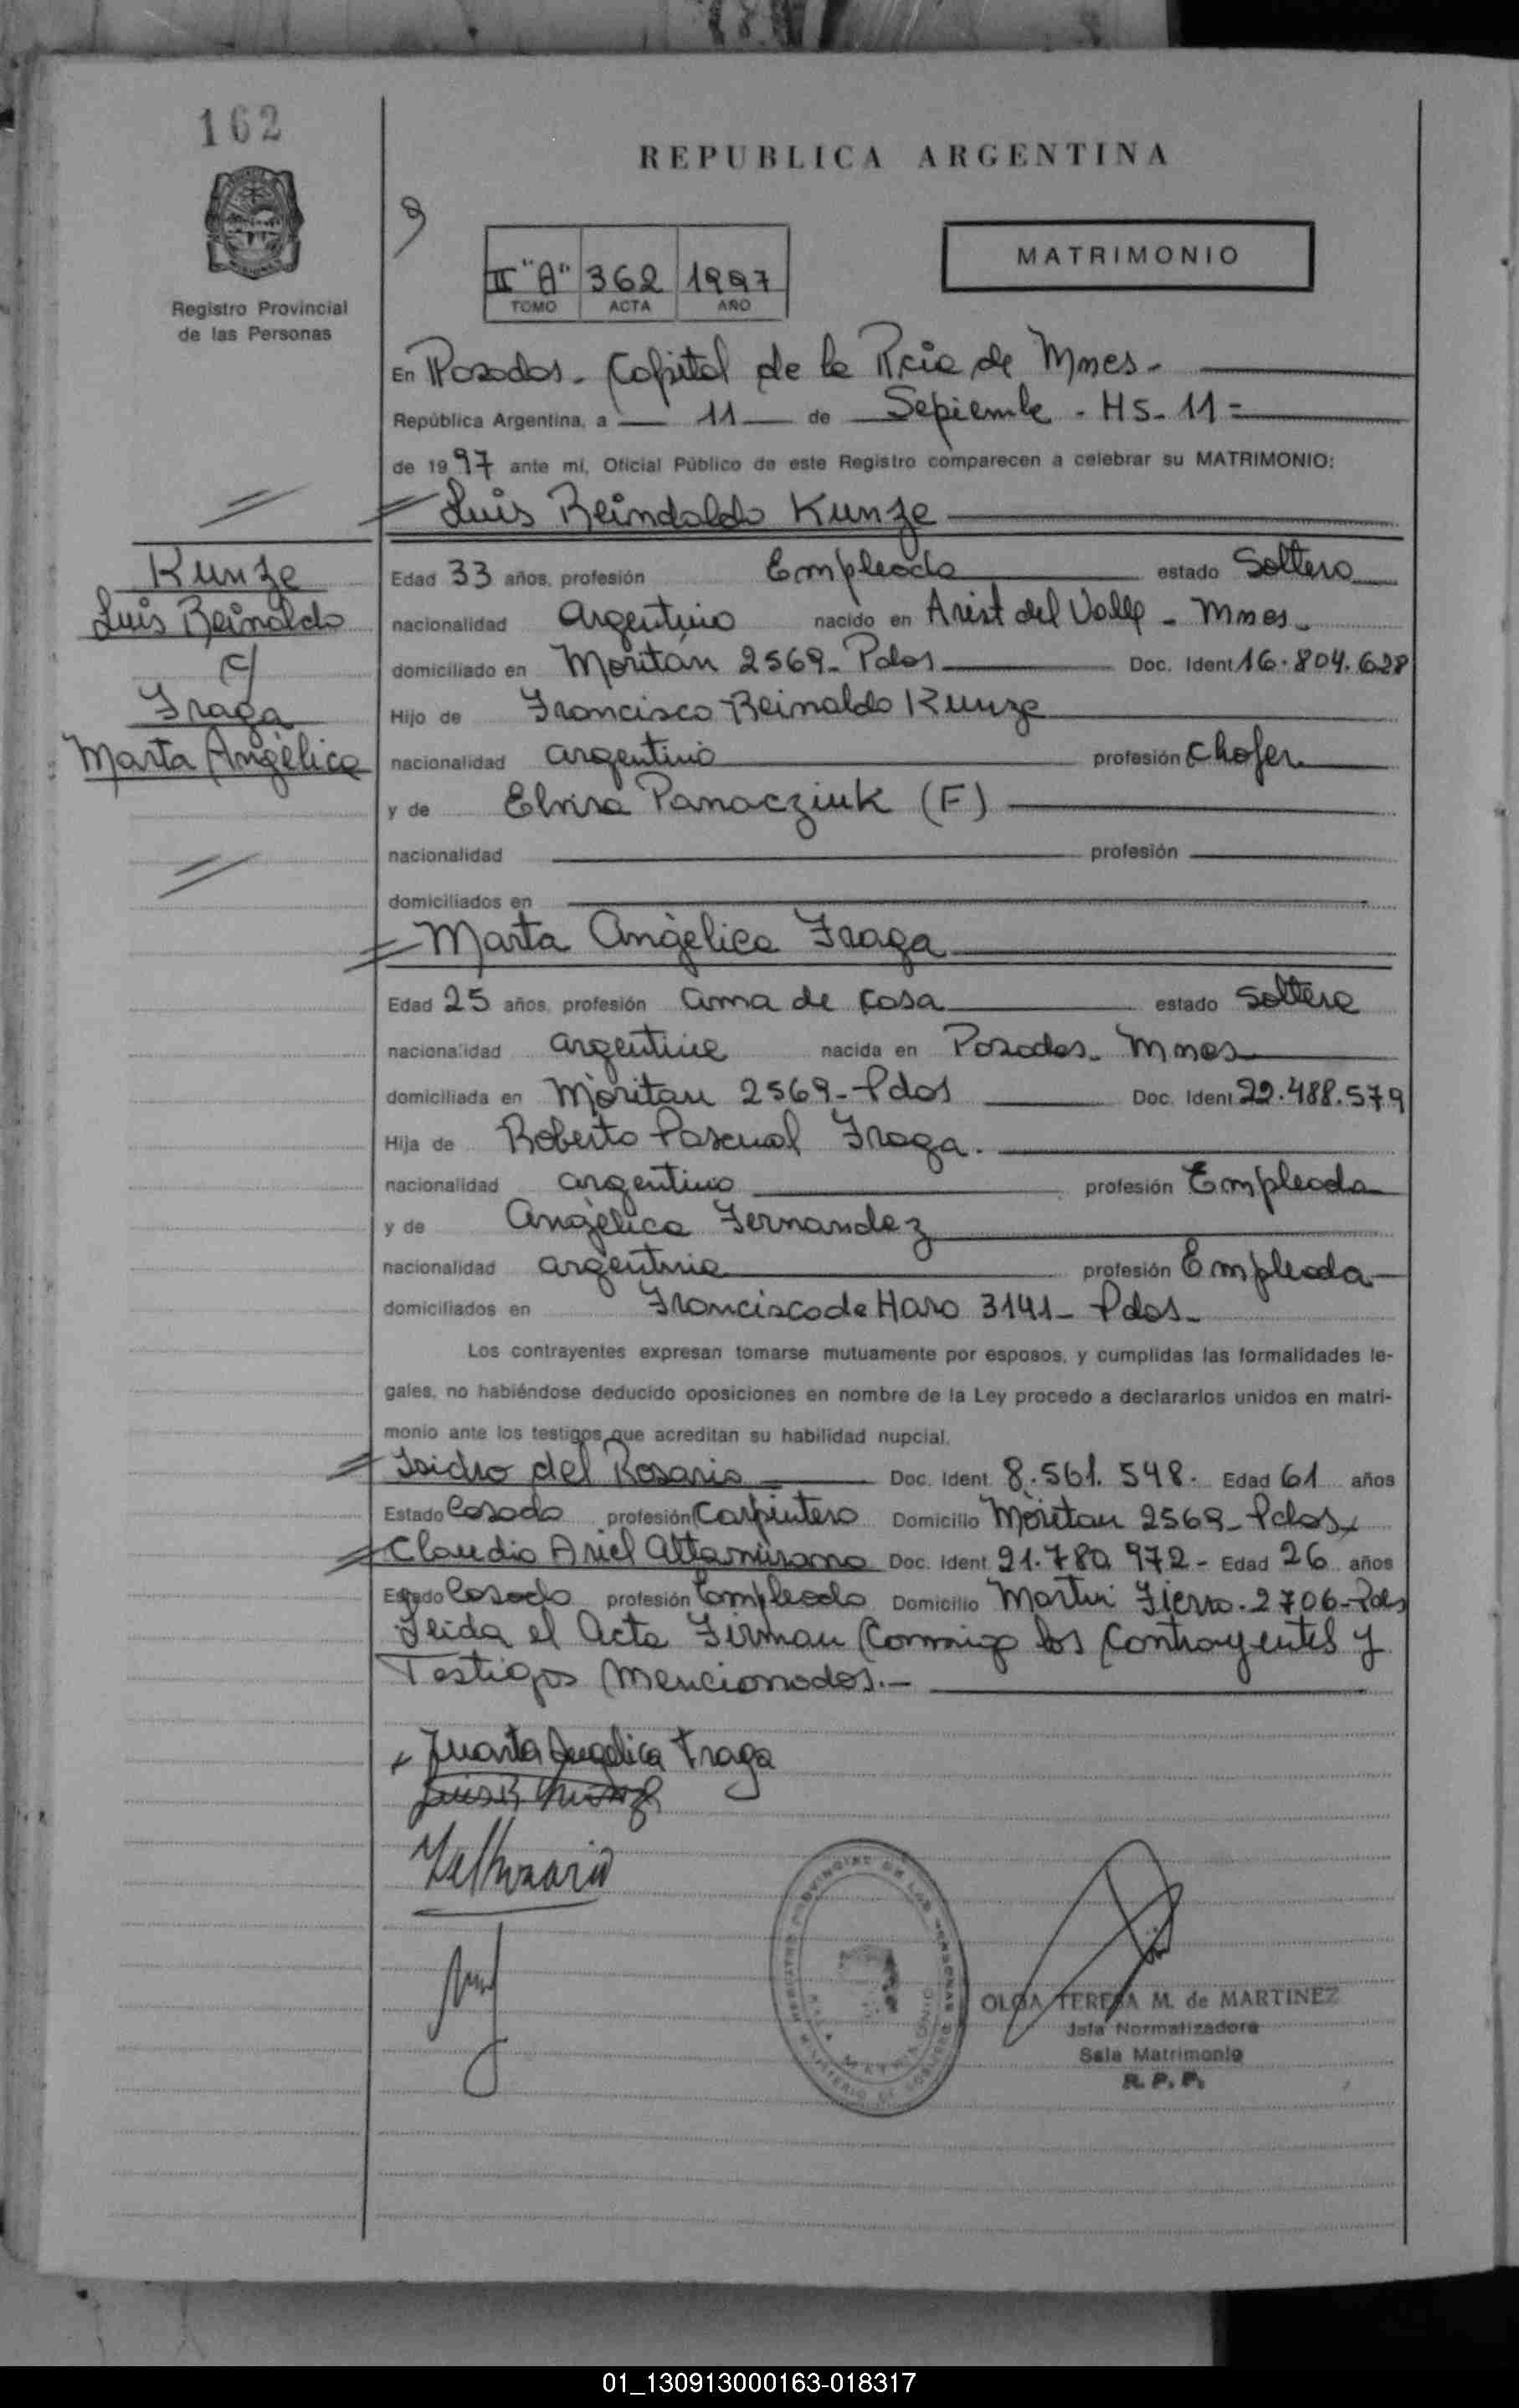 162
REPUBLICA ARGENTINA
MATRIMONIO
II "A" 362 1997
TOMO ACTA AÑO
Registro Provincial
de las Personas
En Posadas - Capital de la Pcia de Mnes -
República Argentina, a 11 de Sepiembe - HS - 11 =
de 1997 ante mí, Oficial Público de este Registro comparecen a celebrar su MATRIMONIO:
Luis Reindoldo Kunze
Kunze
Luis Reinaldo
c/
Fraga
Marta Angélica
Edad 33 años, profesión Empleado estado Soltero
nacionalidad Argentino nacido en Arist del Valle - Mnes -
domiciliado en Moritán 2569 - Pdas Doc. Ident 16.804.628
Hijo de Francisco Reinaldo Kunze
nacionalidad argentino profesión Chofer
y de Elvira Panacziuk (F)
nacionalidad profesión
domiciliados en
Marta Angélica Fraga
Edad 25 años, profesión ama de casa estado Soltera
nacionalidad argentina nacida en Posadas - Mnes
domiciliada en Moritan 2569 - Pdas Doc. Ident 22.488.579
Hija de Roberto Pascual Fraga.
nacionalidad argentino profesión Empleado
y de Angélica Fernandez
nacionalidad argentina profesión Empleada
domiciliados en Francisco de Haro 3141 - Pdas -
Los contrayentes expresan tomarse mutuamente por esposos, y cumplidas las formalidades le-
gales, no habiéndose deducido oposiciones en nombre de la Ley procedo a declararlos unidos en matri-
monio ante los testigos que acreditan su habilidad nupcial.
Isidro del Rosario Doc. Ident. 8.561.548. Edad 61 años
Estado Casado profesión Carpintero Domicilio Moritan 2569 - Pdas
Claudio Ariel Altamirano Doc. Ident. 21.780.972 - Edad 26 años
Estado Casado profesión Empleado Domicilio Martin Fierro - 2706 - Pdas
Leida el Acta Firman Conmigo los Contrayentes y
Testigos Mencionados. -
Marta Angelica Fraga
OLGA TERESA M. de MARTINEZ
Jefa Normalizadora
Sala Matrimonio
R. P. P.
01_130913000163-018317